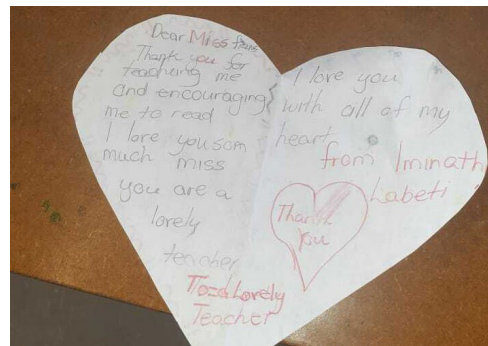 Dear Miss
Thank you for
teaching me
and encouraging
me to read
I love you som
much miss
you are a
lovely
teacher
To a Lovely
Teacher
I love you
with all of my
heart
from Iminathi
Labeti
Thank
you